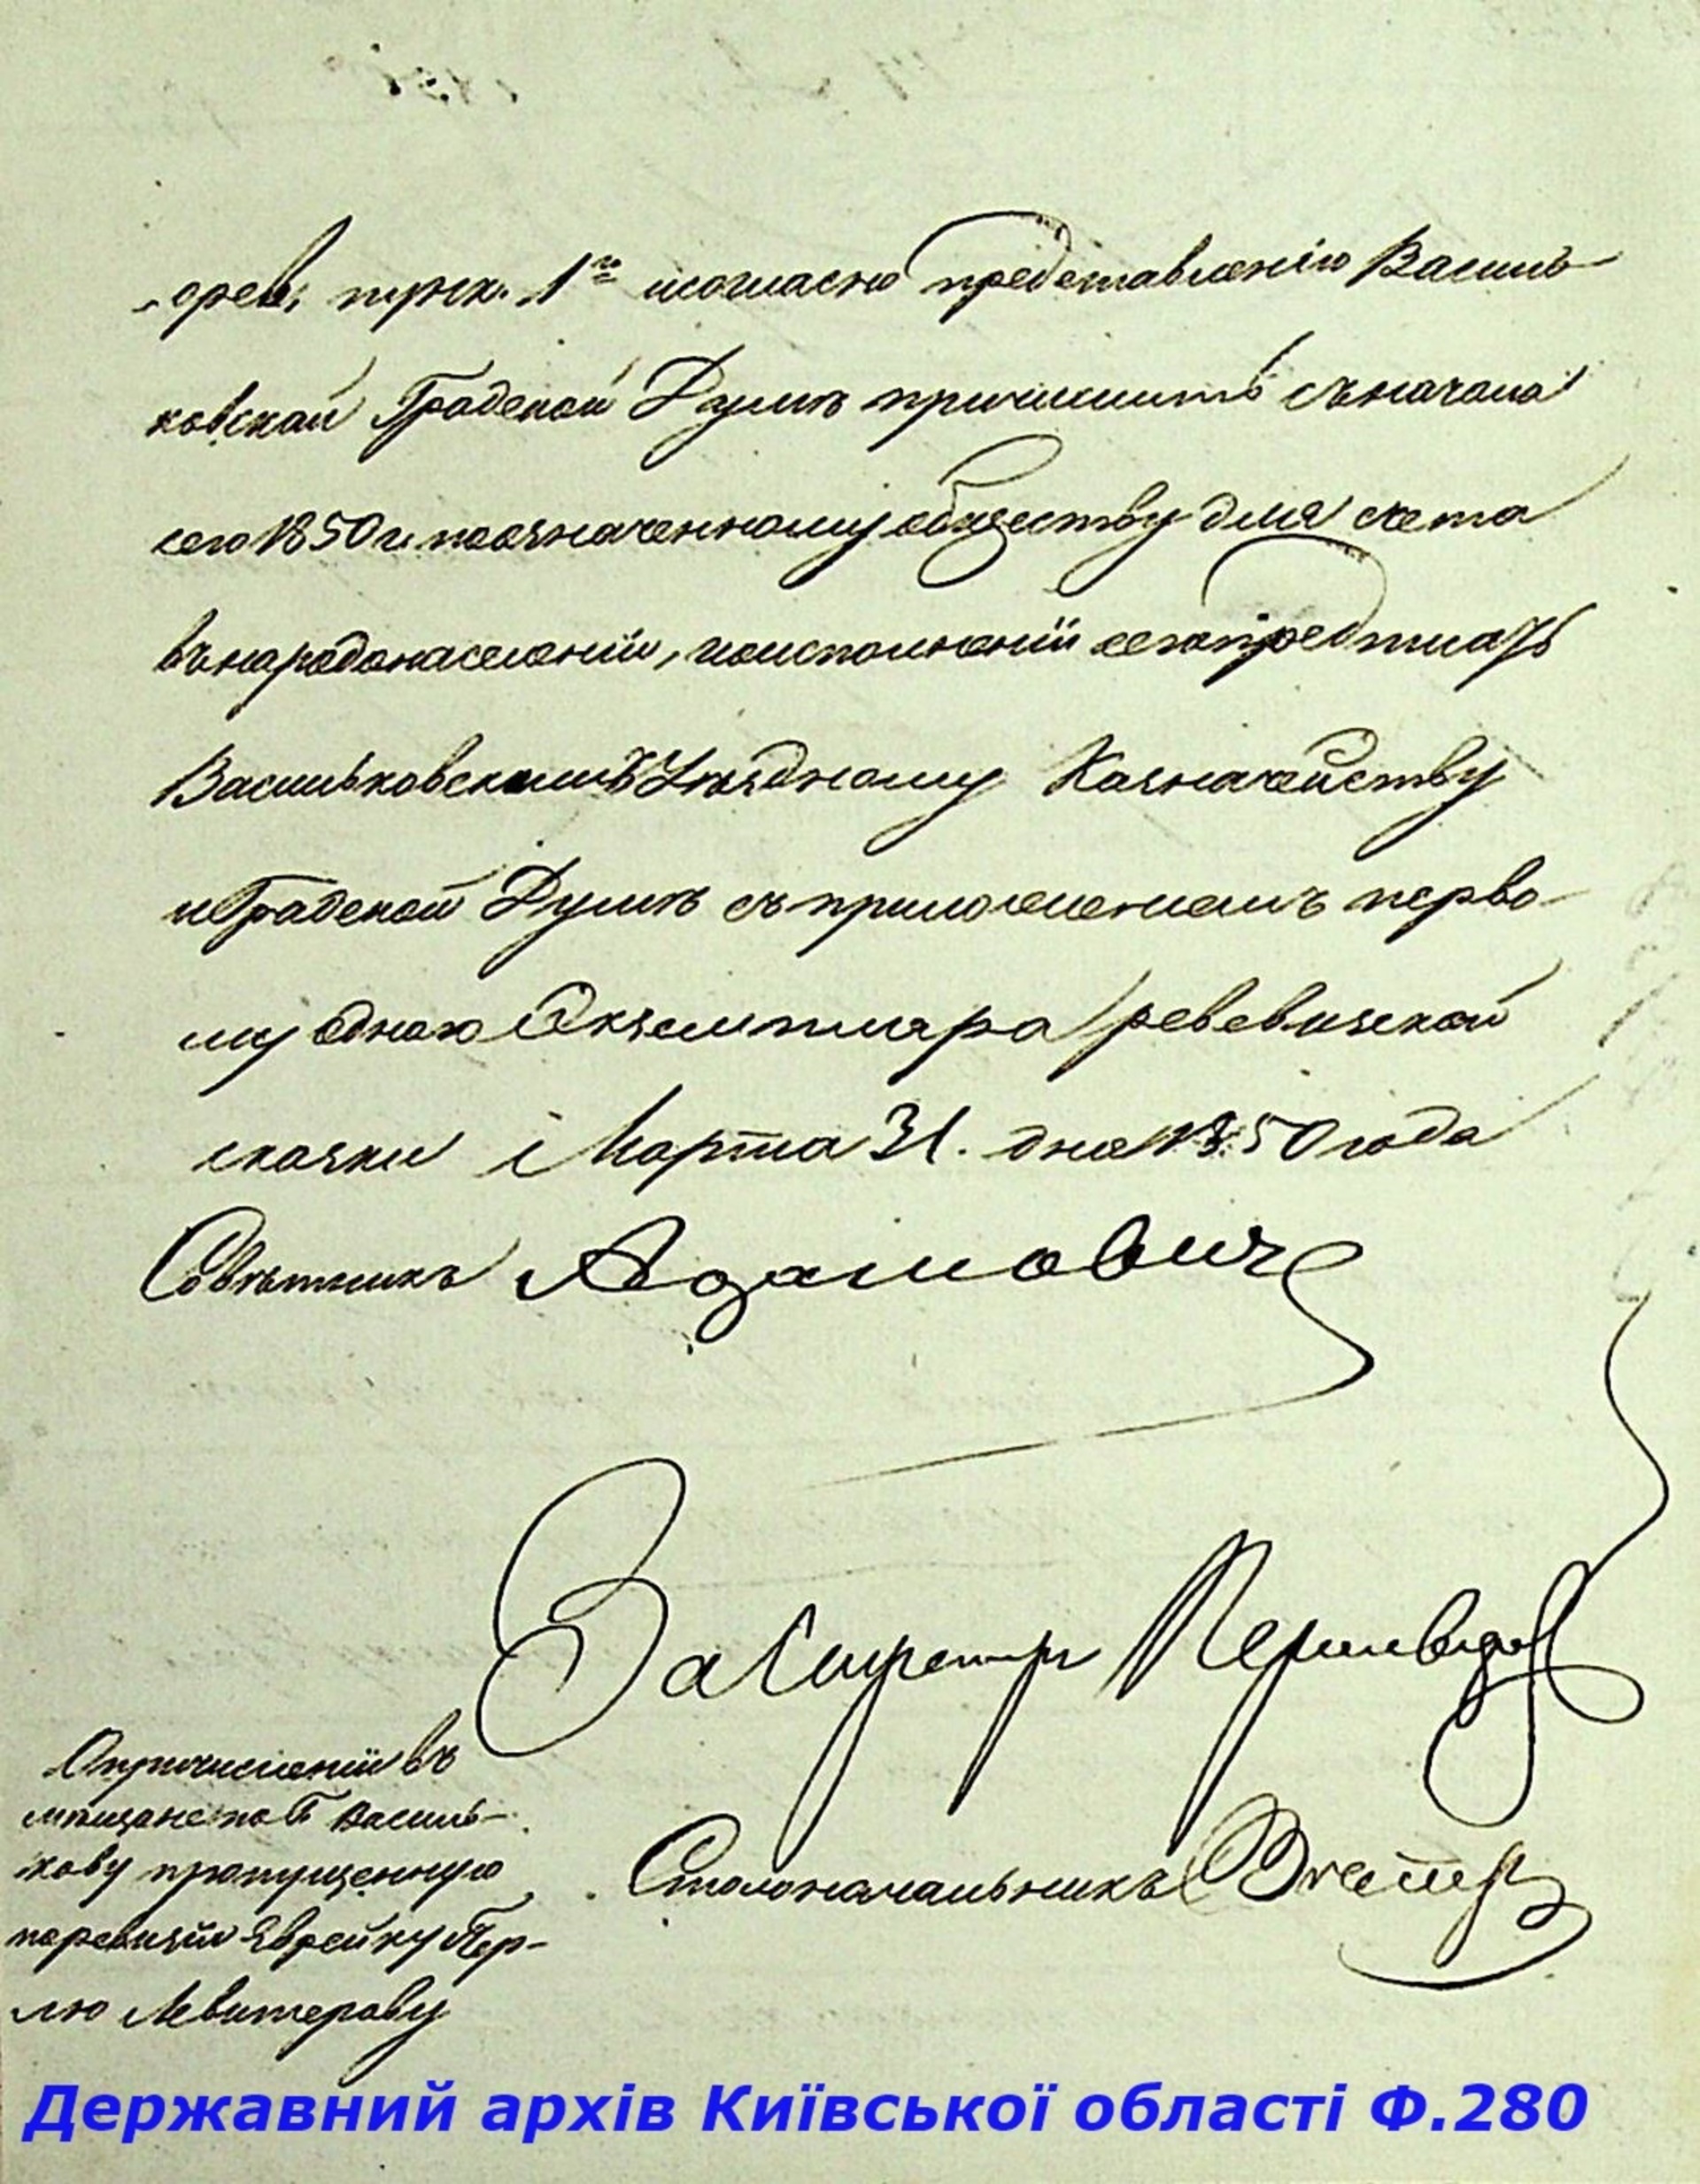 прик. 1го и согласно представленію Василь-
ковской Градской Думы причислить съ начала
сего 1850 г. къ означенному обществу для счета
въ народонаселеніи, о исполненіи сего предписать
Васильковскимъ Уѣздному Казначейству
и Градской Думѣ съ приложеніемъ перво-
му одного Экземпляра ревизской
сказки Марта 31. дня 1850 года
Совѣтникъ Адамович
За Секретаря
Столоначальникъ
О причисленіи въ
мѣщане по г. Василь-
кову пропущенную
по ревизіи Еврейку Пер-
лю Левитерову
Державний архів Київської області Ф.280